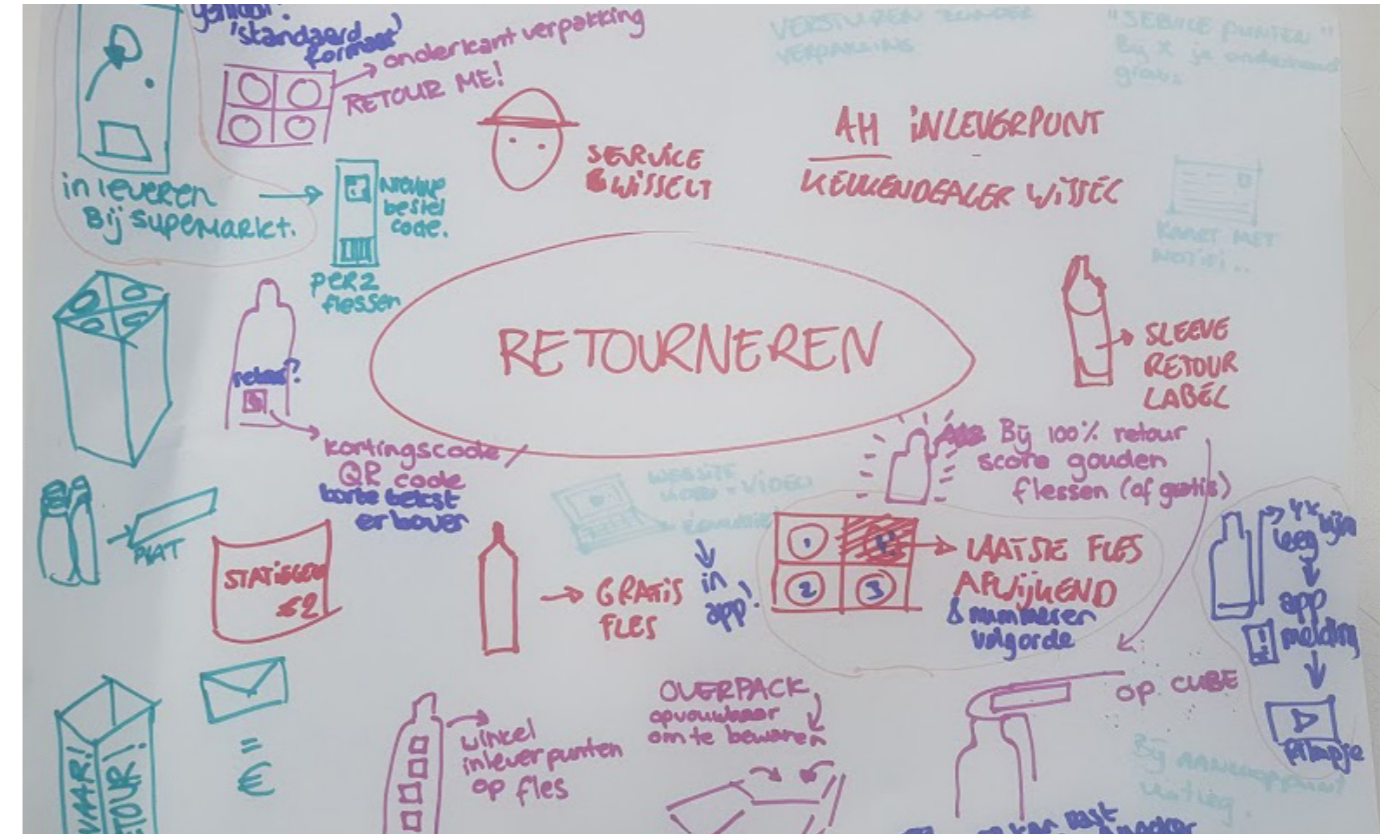 'standaard
formaat'
onderkant verpakking
RETOUR ME!
VERSTUREN ZONDER
VERPAKKING
"SERVICE PUNTEN"
Bij x je
gratis
inleveren
Bij supermarkt.
nieuwe
bestel
code.
per 2
flessen
SERVICE
WISSELT
AH INLEVERPUNT
KEUKENDEALER WISSEL
KAART MET
NOTIFI..
RETOURNEREN
SLEEVE
RETOUR
LABEL
retour?
kortingscode/
QR code
korte tekst
erboven
Bij 100% retour
score gouden
flessen (of gratis)
WEBSITE
VIDEO
in
app!
PLAT
STATIEGELD
€2
GRATIS
FLES
1
2
3
LAATSTE FLES
AFWIJKEND
& nummeren
volgorde
bijna
leeg
app
melding
filmpje
=
€
winkel
inleverpunten
op fles
OVERPACK
opvouwbaar
om te bewaren
OP CUBE
RETOUR!
Bij